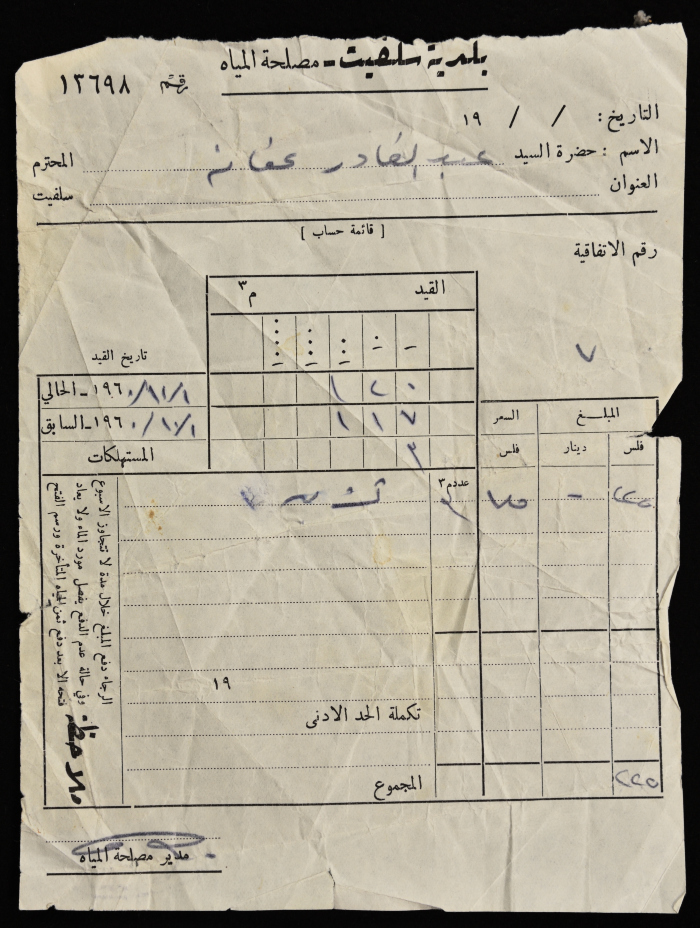 بلدية سلفيت - مصلحة المياه
رقم ١٣٦٩٨
التاريخ: / / ١٩
الاسم: حضرة السيد عبد القادر عفانه المحترم
العنوان سلفيت
[ قائمة حساب ]
رقم الاتفاقية
٧
القيد م٣
تاريخ القيد
١٩٦٠/١١/١ - الحالي ١٢٠
١٩٦٠/١٠/١ - السابق ١١٧
المستهلكات ٣
المبلغ السعر
فلس دينار فلس
٢٢٥ - ٧٥ عدد م٣ ٣
١٩
تكملة الحد الادنى
المجموع ٢٢٥
ملاحظة:
الرجاء دفع المبلغ خلال مدة لا تتجاوز الاسبوع
وفي حالة عدم الدفع يفصل مورد الماء ولا يعاد
فتحه الا بعد دفع ثمن المياه المتأخرة ورسم الفتح
مدير مصلحة المياه